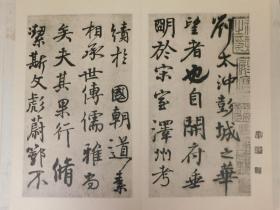 劉太沖彭城之華
望者也自開府垂
明於宋室澤州考
績於 國朝道素
相承世傳儒雅尚
矣夫其果行脩
絜斯文彪蔚鄂不